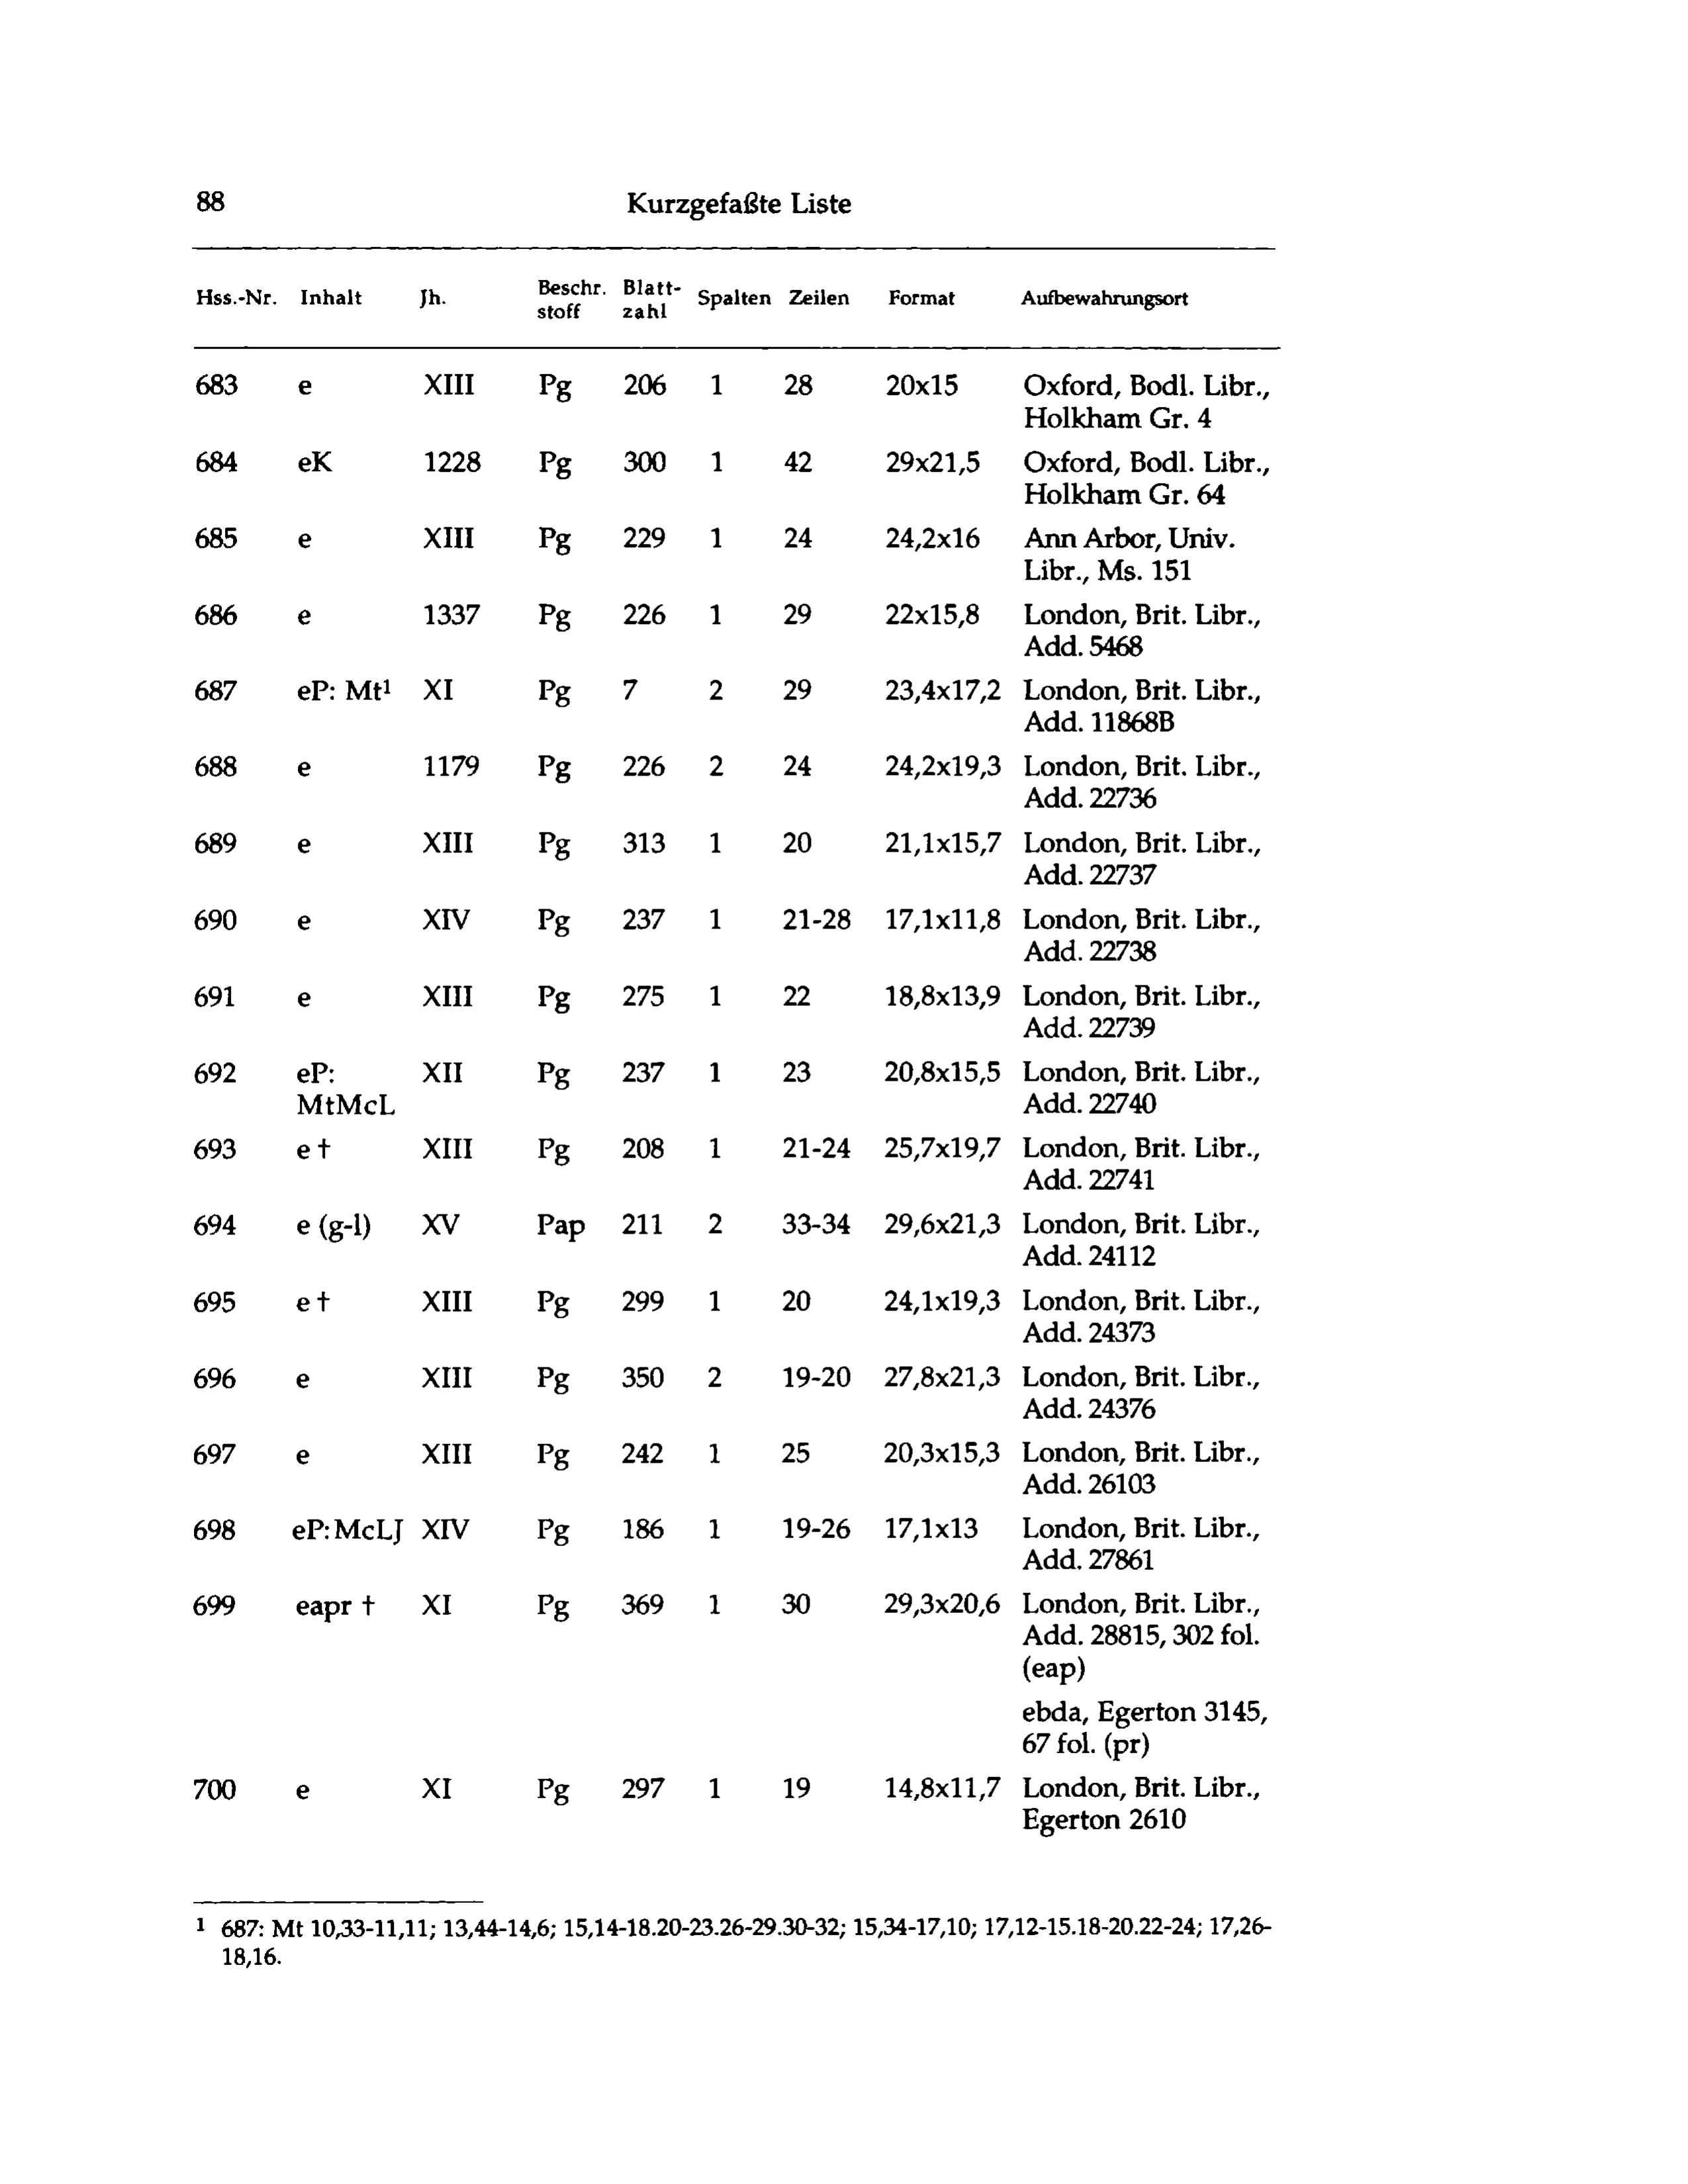 88 Kurzgefaßte Liste
Hss.-Nr. Inhalt Jh. Beschr. stoff Blatt- zahl Spalten Zeilen Format Aufbewahrungsort
683 e XIII Pg 206 1 28 20x15 Oxford, Bodl. Libr.,
Holkham Gr. 4
684 eK 1228 Pg 300 1 42 29x21,5 Oxford, Bodl. Libr.,
Holkham Gr. 64
685 e XIII Pg 229 1 24 24,2x16 Ann Arbor, Univ.
Libr., Ms. 151
686 e 1337 Pg 226 1 29 22x15,8 London, Brit. Libr.,
Add. 5468
687 eP: Mt¹ XI Pg 7 2 29 23,4x17,2 London, Brit. Libr.,
Add. 11868B
688 e 1179 Pg 226 2 24 24,2x19,3 London, Brit. Libr.,
Add. 22736
689 e XIII Pg 313 1 20 21,1x15,7 London, Brit. Libr.,
Add. 22737
690 e XIV Pg 237 1 21-28 17,1x11,8 London, Brit. Libr.,
Add. 22738
691 e XIII Pg 275 1 22 18,8x13,9 London, Brit. Libr.,
Add. 22739
692 eP: XII Pg 237 1 23 20,8x15,5 London, Brit. Libr.,
MtMcL Add. 22740
693 e † XIII Pg 208 1 21-24 25,7x19,7 London, Brit. Libr.,
Add. 22741
694 e (g-l) XV Pap 211 2 33-34 29,6x21,3 London, Brit. Libr.,
Add. 24112
695 e † XIII Pg 299 1 20 24,1x19,3 London, Brit. Libr.,
Add. 24373
696 e XIII Pg 350 2 19-20 27,8x21,3 London, Brit. Libr.,
Add. 24376
697 e XIII Pg 242 1 25 20,3x15,3 London, Brit. Libr.,
Add. 26103
698 eP:McLJ XIV Pg 186 1 19-26 17,1x13 London, Brit. Libr.,
Add. 27861
699 eapr † XI Pg 369 1 30 29,3x20,6 London, Brit. Libr.,
Add. 28815, 302 fol.
(eap)
ebda, Egerton 3145,
67 fol. (pr)
700 e XI Pg 297 1 19 14,8x11,7 London, Brit. Libr.,
Egerton 2610
¹ 687: Mt 10,33-11,11; 13,44-14,6; 15,14-18.20-23.26-29.30-32; 15,34-17,10; 17,12-15.18-20.22-24; 17,26-
18,16.